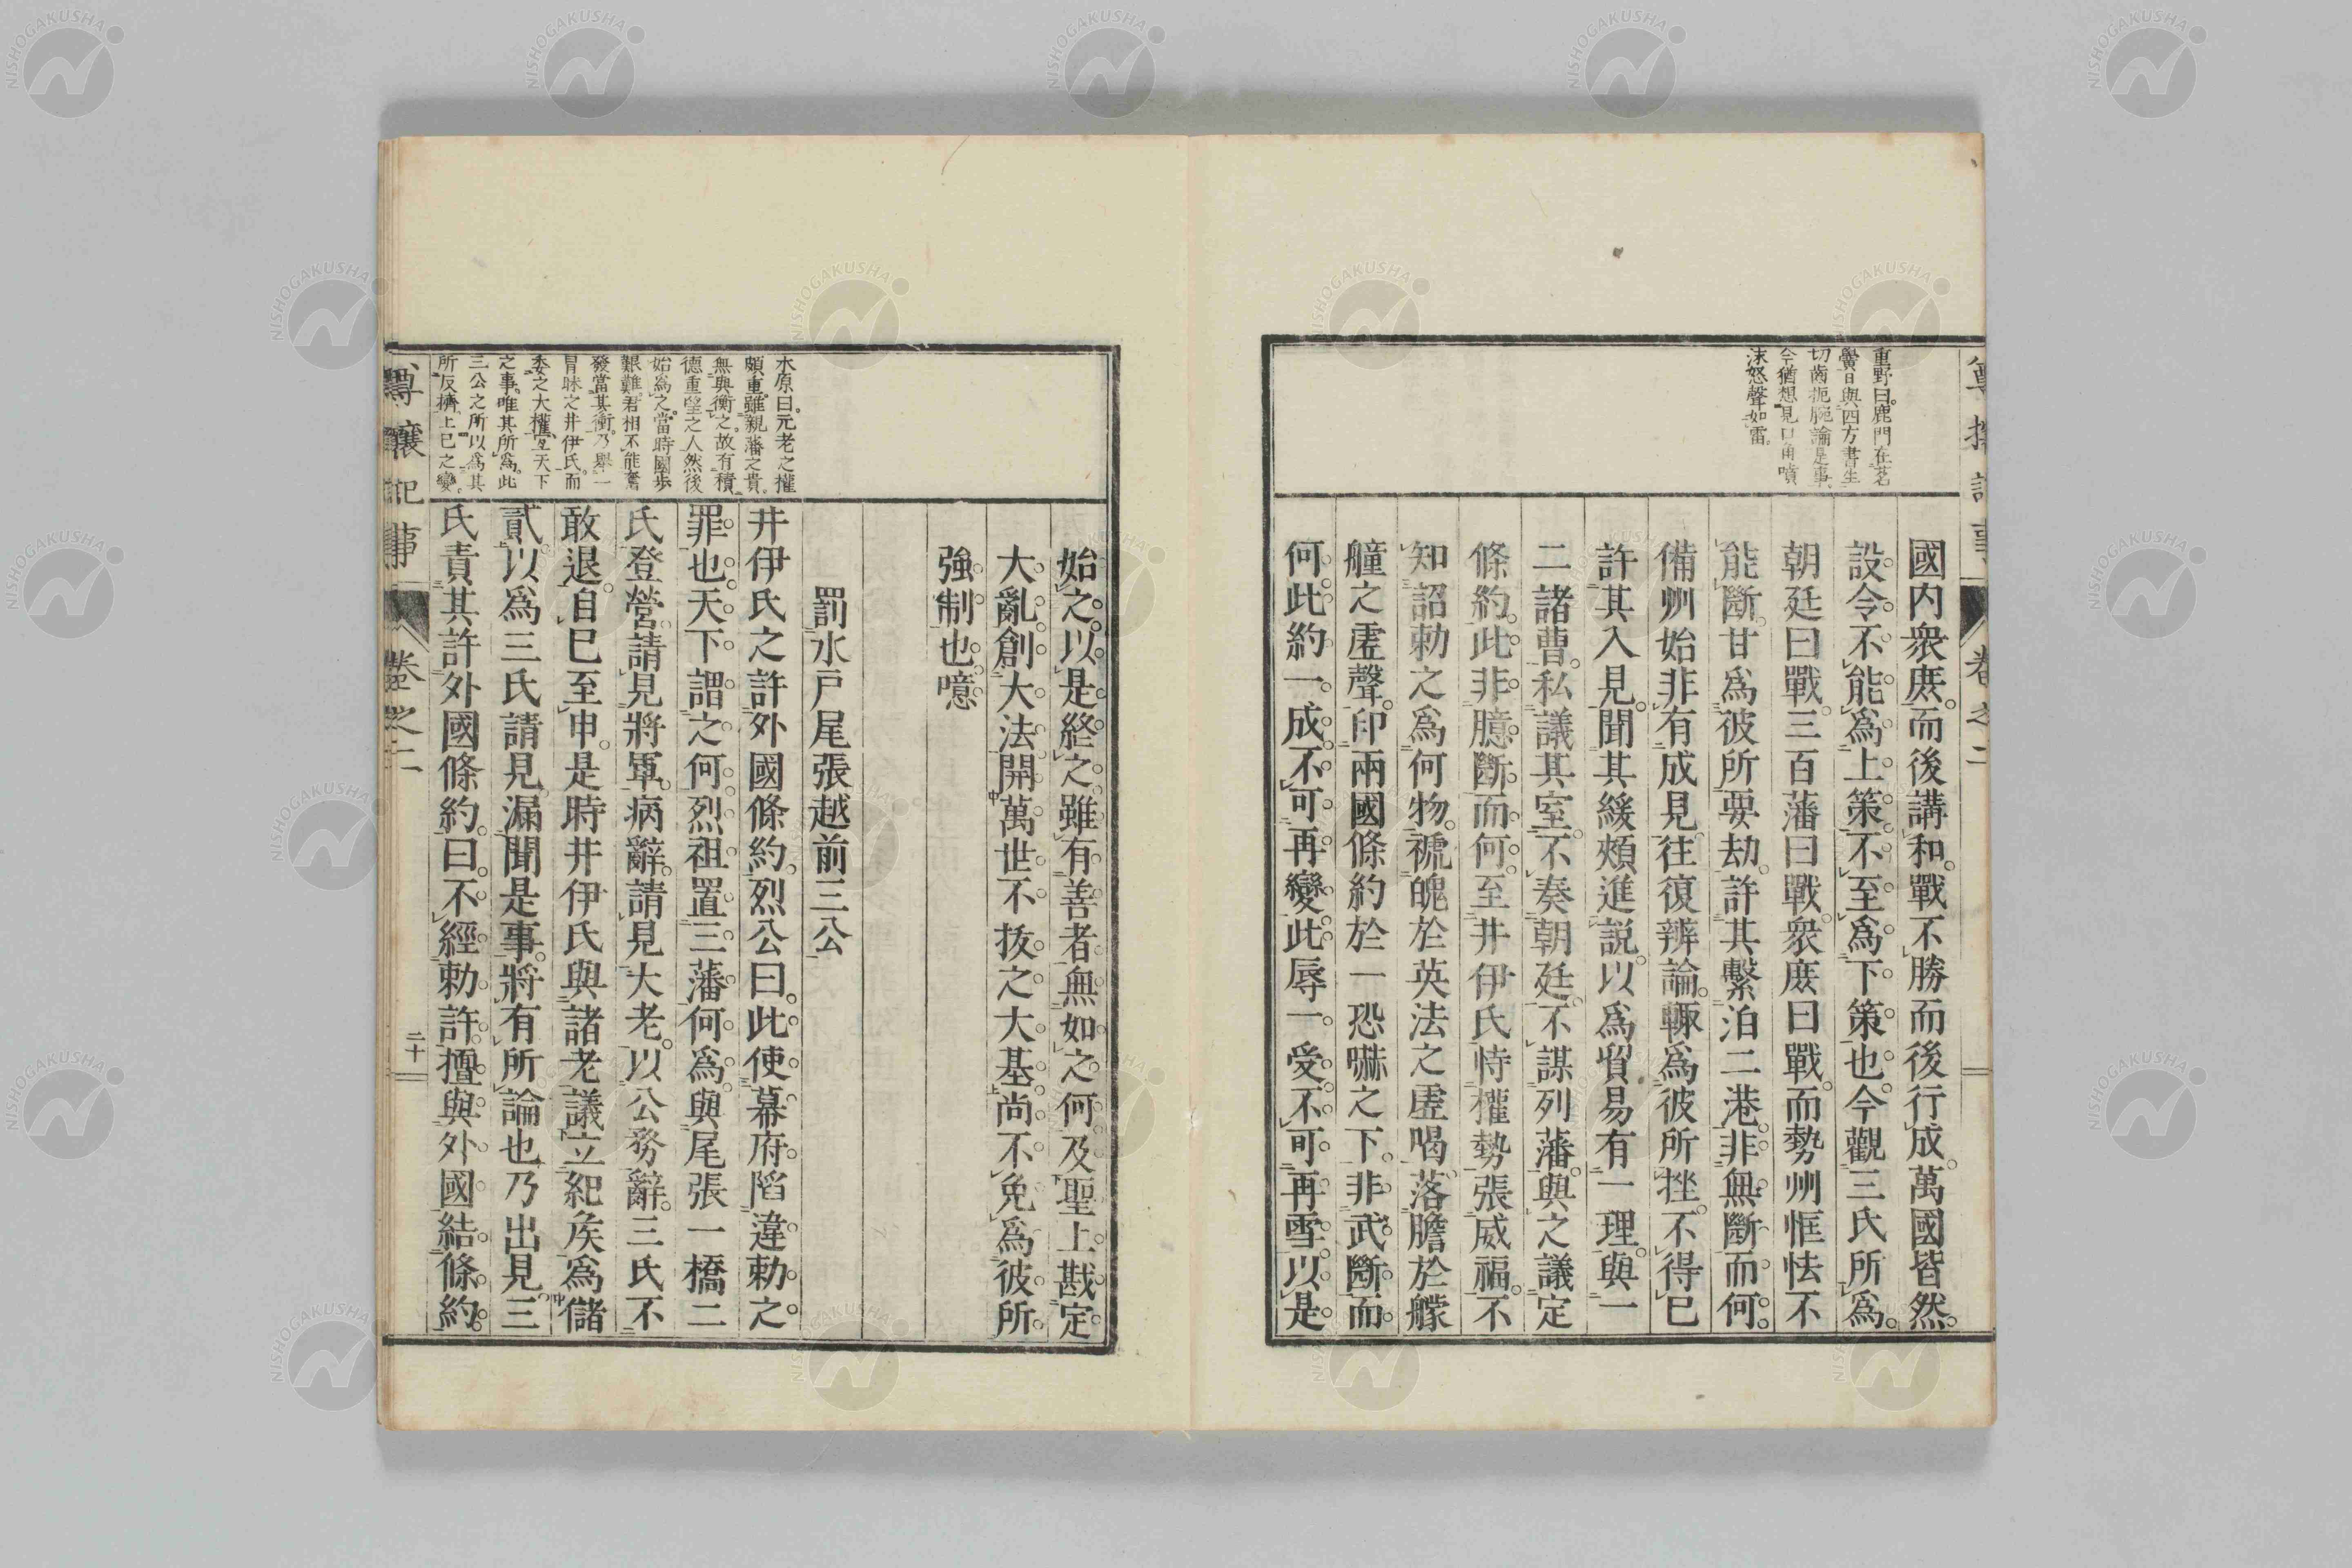 尊攘記事
卷之二
重野曰。鹿門在茗
黌日與四方書生
切齒扼腕論是事。
今猶想見口角噴
沫怒聲如雷。
國內衆庶。而後講和。戰不勝而後行成。萬國皆然。
設令不能爲上策。不至爲下策也。今觀三氏所爲。
朝廷曰戰。三百藩曰戰。衆庶曰戰。而勢州恇怯不
能斷。甘爲彼所要劫。許其繫泊二港。非無斷而何。
備州始非有成見。往復辨論。輙爲彼所挫。不得已
許其入見。聞其緩頰進説。以爲貿易有一理。與一
二諸曹。私議其室。不奏朝廷。不謀列藩。與之議定
條約。此非臆斷而何。至井伊氏恃權勢張威福。不
知詔勅之爲何物。褫魄於英法之虛喝。落膽於艨
艟之虛聲。印兩國條約於一恐嚇之下。非武斷而
何。此約一成。不可再變。此辱一受。不可再雪。以是
始之。以是終之。雖有善者無如之何。及聖上戡定
大亂。創大法開萬世不抜之大基。尚不免爲彼所
強制也。噫
罰水戶尾張越前三公
水原曰。元老之權
頗重。雖親藩之貴。
無與衡之。故有積
德重望之人然後
始爲之。當時國步
艱難。君相不能奮
發當其衝。乃舉一
冒昧之井伊氏。而
委之大權。宜天下
之事。唯其所爲。此
三公之所以爲其
所反擠。上巳之變。
井伊氏之許外國條約。烈公曰。此使幕府陷違勅之
罪也。天下謂之何。烈祖置三藩何爲。與尾張一橋二
氏登營。請見將軍。病辭。請見大老。以公務辭。三氏不
敢退。自巳至申。是時井伊氏與諸老議立紀矦爲儲
貳。以爲三氏請見。漏聞是事。將有所論也乃出見。三
氏責其許外國條約。曰。不經勅許。擅與外國結條約。
尊攘記事
卷之二
二十